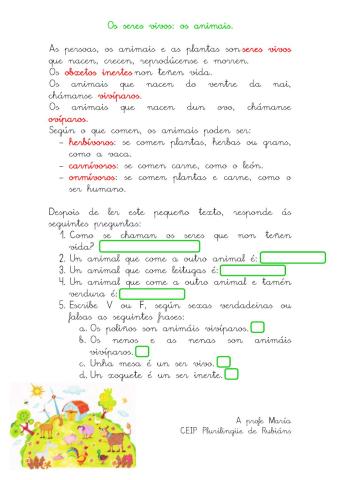 Os seres vivos: os animais.
As persoas, os animais e as plantas son seres vivos
que nacen, crecen, reprodúcense e morren.
Os obxetos inertes non teñen vida.
Os animais que nacen do ventre da nai,
chámanse vivíparos.
Os animais que nacen dun ovo, chámanse
ovíparos.
Según o que comen, os animais poden ser:
- herbívoros: se comen plantas, herbas ou grans,
como a vaca.
- carnívoros: se comen carne, como o león.
- omnívoros: se comen plantas e carne, como o
ser humano.
Despois de ler este pequeño texto, responde ás
seguintes preguntas:
1. Como se chaman os seres que non teñen
vida?
2. Un animal que come a outro animal é:
3. Un animal que come leitugas é:
4. Un animal que come a outro animal e tamén
verdura é:
5. Escribe V ou F, según sexas verdadeiras ou
falsas as seguintes frases:
a. Os poliños son animáis vivíparos.
b. Os nenos e as nenas son animáis
vivíparos.
c. Unha mesa é un ser vivo.
d. Un xoguete é un ser inerte.
A profe María
CEIP Plurilingüe de Rubiáns